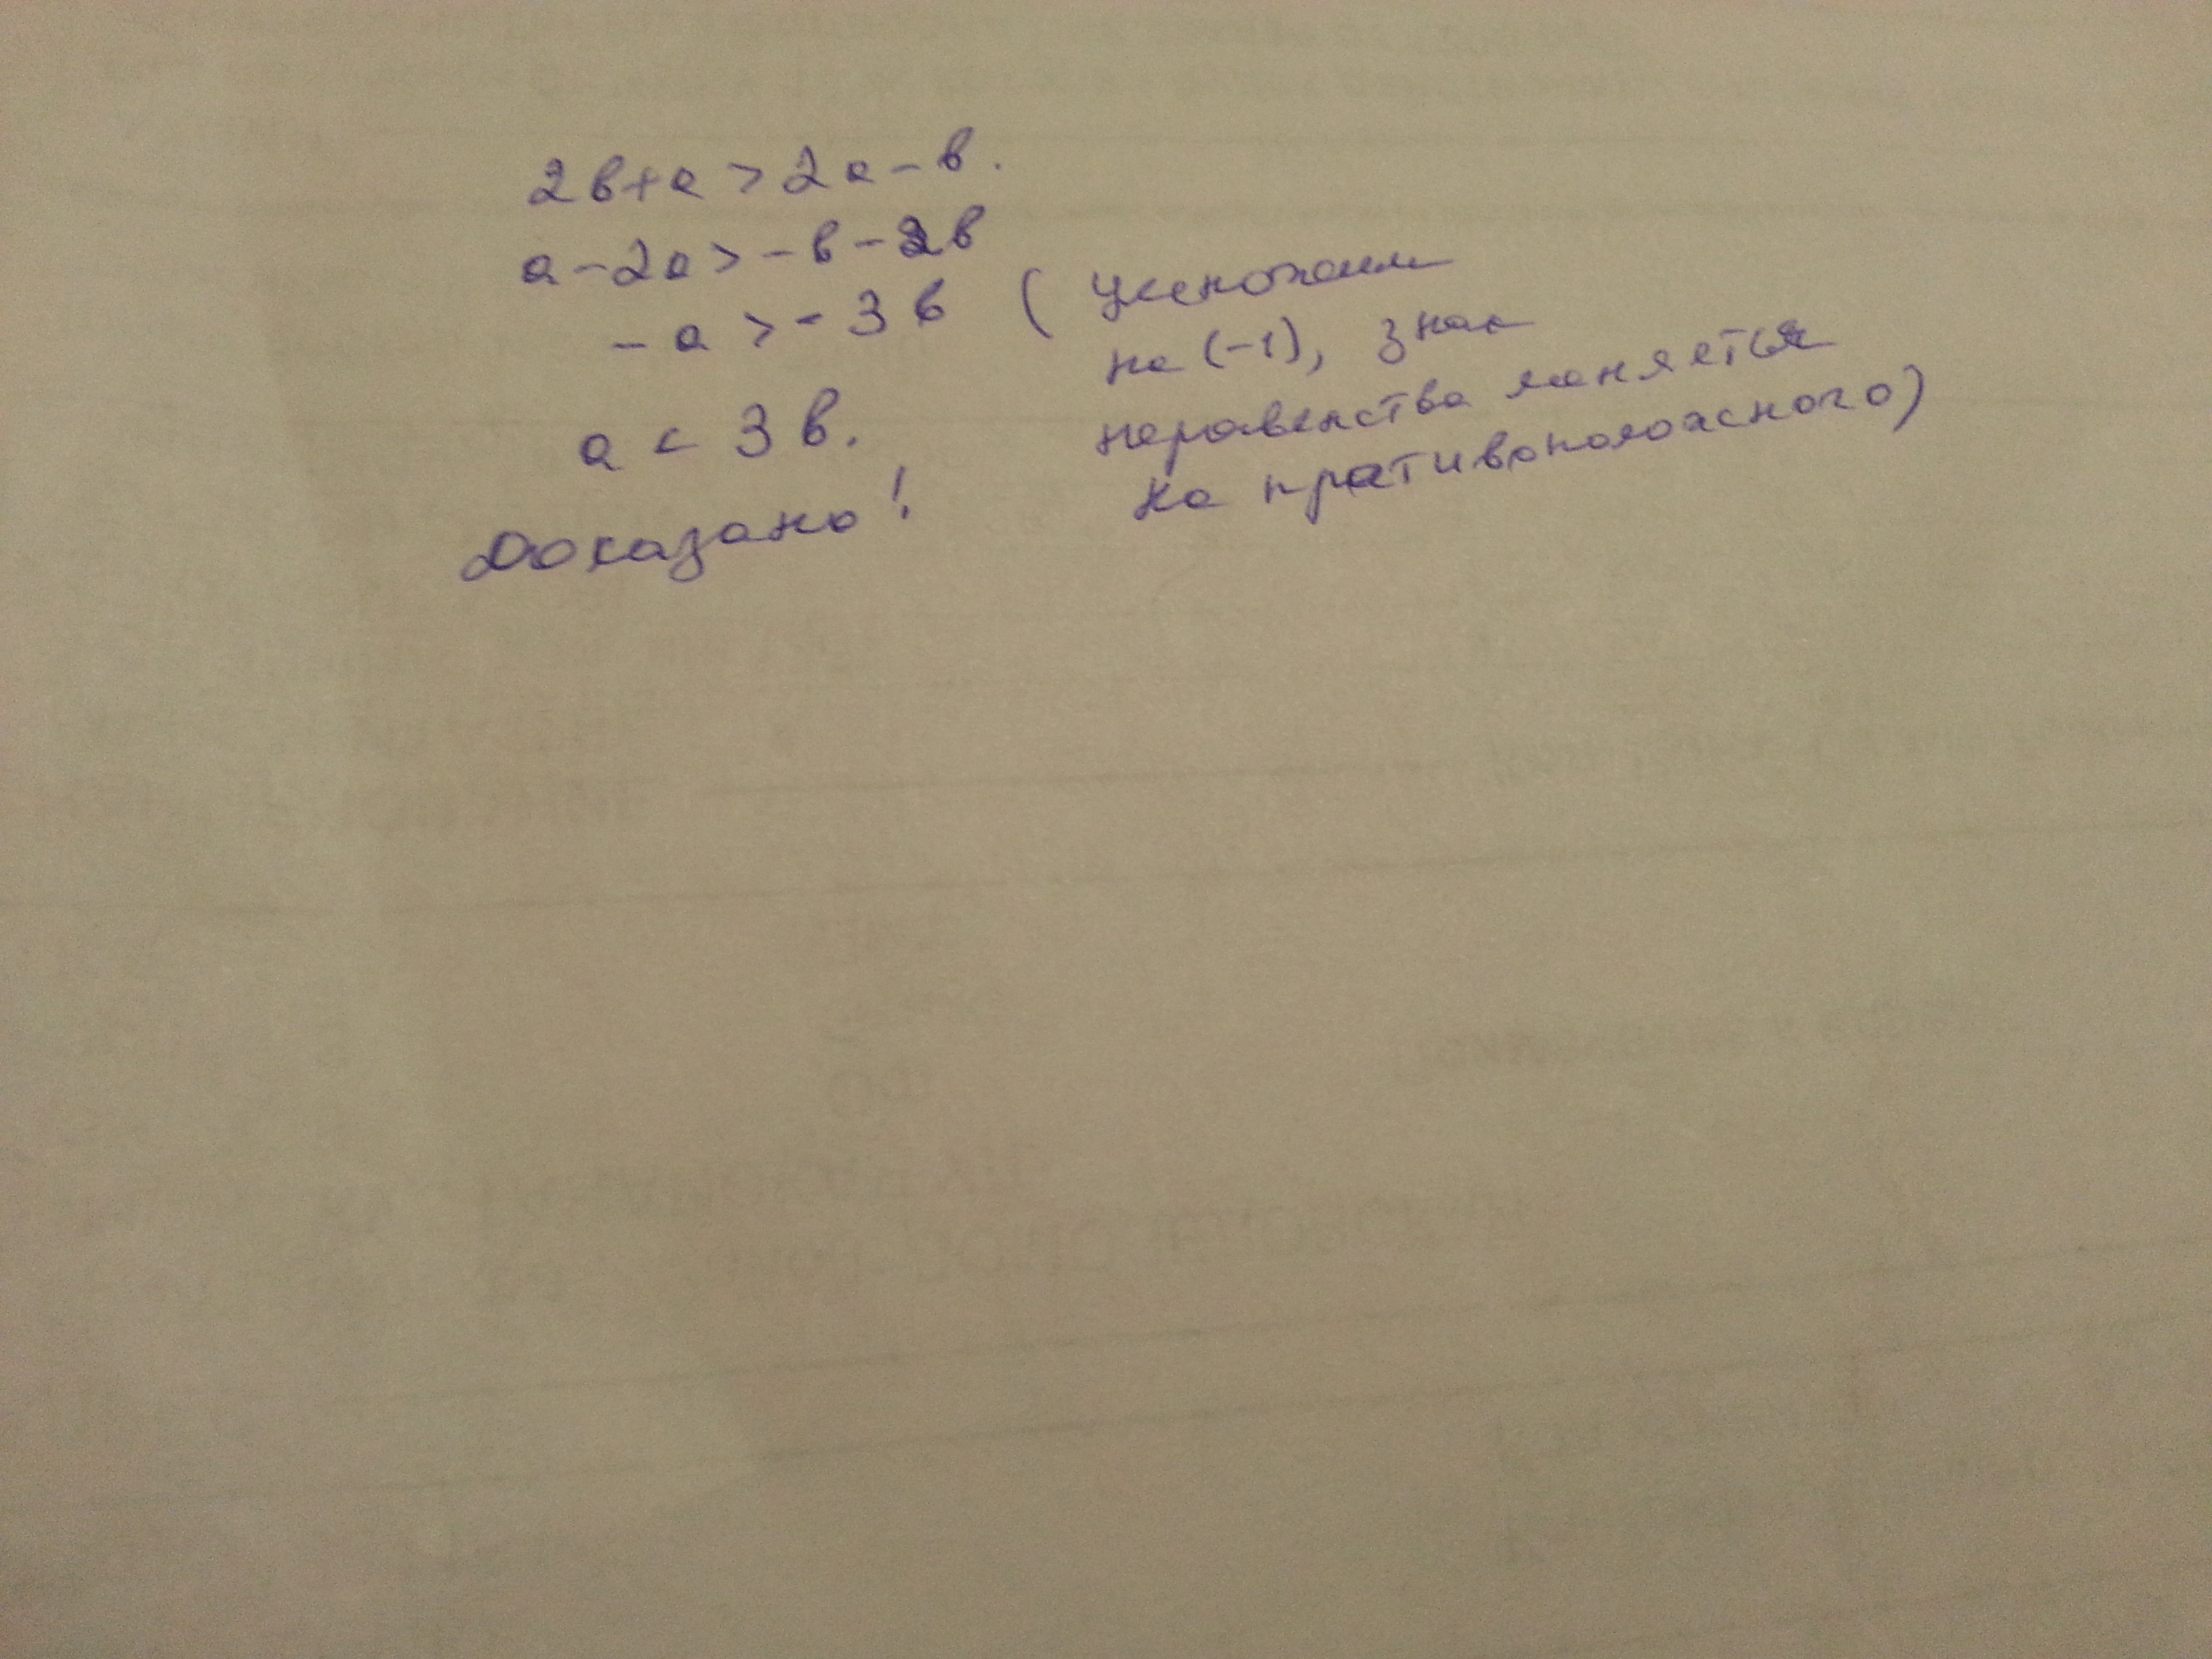 2в+а > 2а - в.
а - 2а > - в - 2в
- а > - 3в ( умножаем
на (-1), знак
а < 3в.
неравенства меняеться
на пративоположного)
Доказано!